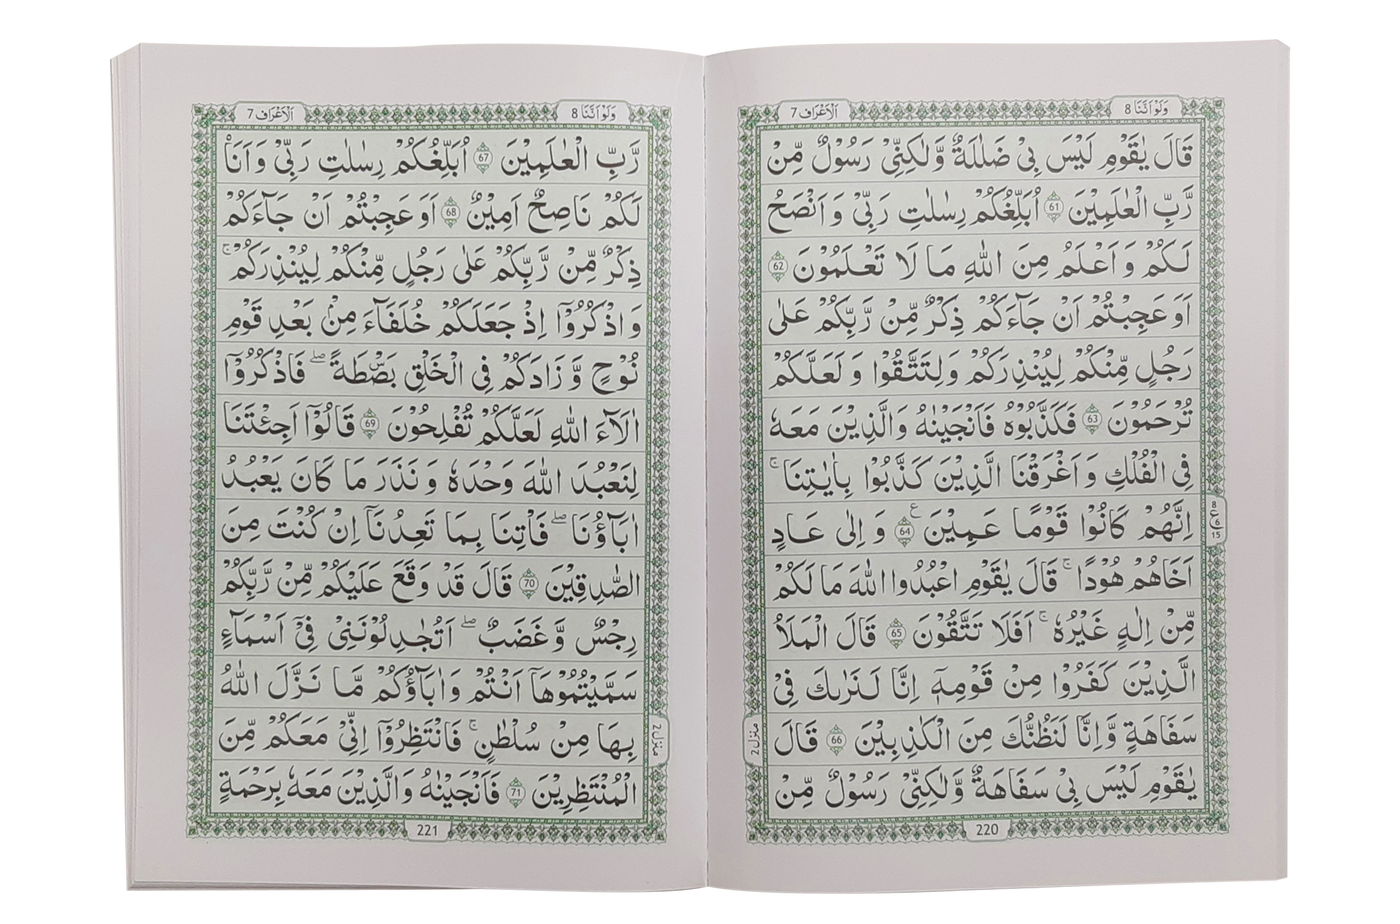 وَلَوْ اَنَّنَا 8
اَلْاَعْرَاف 7
قَالَ يٰقَوْمِ لَيْسَ بِيْ ضَلٰلَةٌ وَّلٰكِنِّيْ رَسُوْلٌ مِّنْ
رَّبِّ الْعٰلَمِيْنَ 61 اُبَلِّغُكُمْ رِسٰلٰتِ رَبِّيْ وَ اَنْصَحُ
لَكُمْ وَ اَعْلَمُ مِنَ اللّٰهِ مَا لَا تَعْلَمُوْنَ 62
اَوَ عَجِبْتُمْ اَنْ جَآءَكُمْ ذِكْرٌ مِّنْ رَّبِّكُمْ عَلٰى
رَجُلٍ مِّنْكُمْ لِيُنْذِرَكُمْ وَلِتَتَّقُوْا وَ لَعَلَّكُمْ
تُرْحَمُوْنَ 63 فَكَذَّبُوْهُ فَاَنْجَيْنٰهُ وَالَّذِيْنَ مَعَهٗ
فِي الْفُلْكِ وَ اَغْرَقْنَا الَّذِيْنَ كَذَّبُوْا بِاٰيٰتِنَا ۚ
اِنَّهُمْ كَانُوْا قَوْمًا عَمِيْنَ ع 64 وَ اِلٰى عَادٍ
8 ع 6 15
اَخَاهُمْ هُوْدًا ۚ قَالَ يٰقَوْمِ اعْبُدُوا اللّٰهَ مَا لَكُمْ
مِّنْ اِلٰهٍ غَيْرُهٗ ۚ اَفَلَا تَتَّقُوْنَ 65 قَالَ الْمَلَاُ
الَّذِيْنَ كَفَرُوْا مِنْ قَوْمِهٖٓ اِنَّا لَنَرٰىكَ فِيْ
سَفَاهَةٍ وَّ اِنَّا لَنَظُنُّكَ مِنَ الْكٰذِبِيْنَ 66 قَالَ
منزل 2
يٰقَوْمِ لَيْسَ بِيْ سَفَاهَةٌ وَّلٰكِنِّيْ رَسُوْلٌ مِّنْ
220
وَلَوْ اَنَّنَا 8
اَلْاَعْرَاف 7
رَّبِّ الْعٰلَمِيْنَ 67 اُبَلِّغُكُمْ رِسٰلٰتِ رَبِّيْ وَ اَنَا۠
لَكُمْ نَاصِحٌ اَمِيْنٌ 68 اَوَ عَجِبْتُمْ اَنْ جَآءَكُمْ
ذِكْرٌ مِّنْ رَّبِّكُمْ عَلٰى رَجُلٍ مِّنْكُمْ لِيُنْذِرَكُمْ ۚ
وَ اذْكُرُوْٓا اِذْ جَعَلَكُمْ خُلَفَآءَ مِنْۢ بَعْدِ قَوْمِ
نُوْحٍ وَّ زَادَكُمْ فِي الْخَلْقِ بَصْۜطَةً ۖ فَاذْكُرُوْٓا
اٰلَآءَ اللّٰهِ لَعَلَّكُمْ تُفْلِحُوْنَ 69 قَالُوْٓا اَجِئْتَنَا
لِنَعْبُدَ اللّٰهَ وَحْدَهٗ وَ نَذَرَ مَا كَانَ يَعْبُدُ
اٰبَآؤُنَا ۖ فَاْتِنَا بِمَا تَعِدُنَآ اِنْ كُنْتَ مِنَ
الصّٰدِقِيْنَ 70 قَالَ قَدْ وَقَعَ عَلَيْكُمْ مِّنْ رَّبِّكُمْ
رِجْسٌ وَّ غَضَبٌ ۖ اَتُجَادِلُوْنَنِيْ فِيْٓ اَسْمَآءٍ
سَمَّيْتُمُوْهَآ اَنْتُمْ وَ اٰبَآؤُكُمْ مَّا نَزَّلَ اللّٰهُ
بِهَا مِنْ سُلْطٰنٍ ۚ فَانْتَظِرُوْٓا اِنِّيْ مَعَكُمْ مِّنَ
منزل 2
الْمُنْتَظِرِيْنَ 71 فَاَنْجَيْنٰهُ وَالَّذِيْنَ مَعَهٗ بِرَحْمَةٍ
221